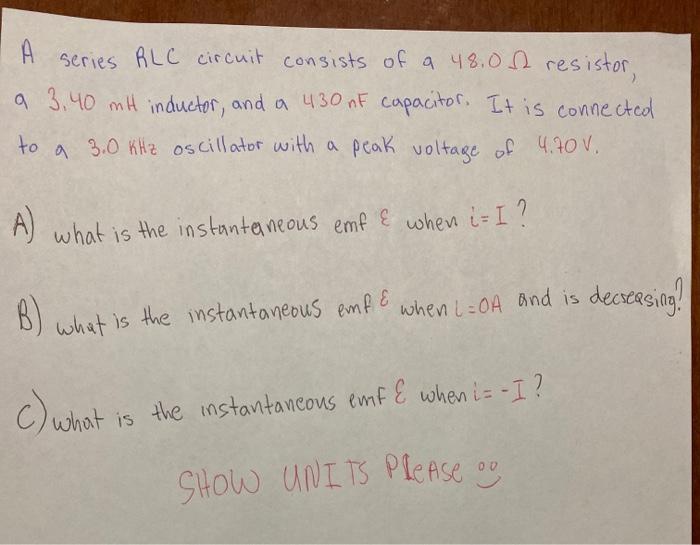 A series RLC circuit consists of a 48.0 Ω resistor,
a 3.40 mH inductor, and a 430 nF capacitor. It is connected
to a 3.0 KHz oscillator with a peak voltage of 4.70 V.
A) what is the instantaneous emf ε when i = I ?
B) what is the instantaneous emf ε when i = 0A and is decreasing?
C) what is the instantaneous emf ε when i = -I ?
SHOW UNITS PleASE